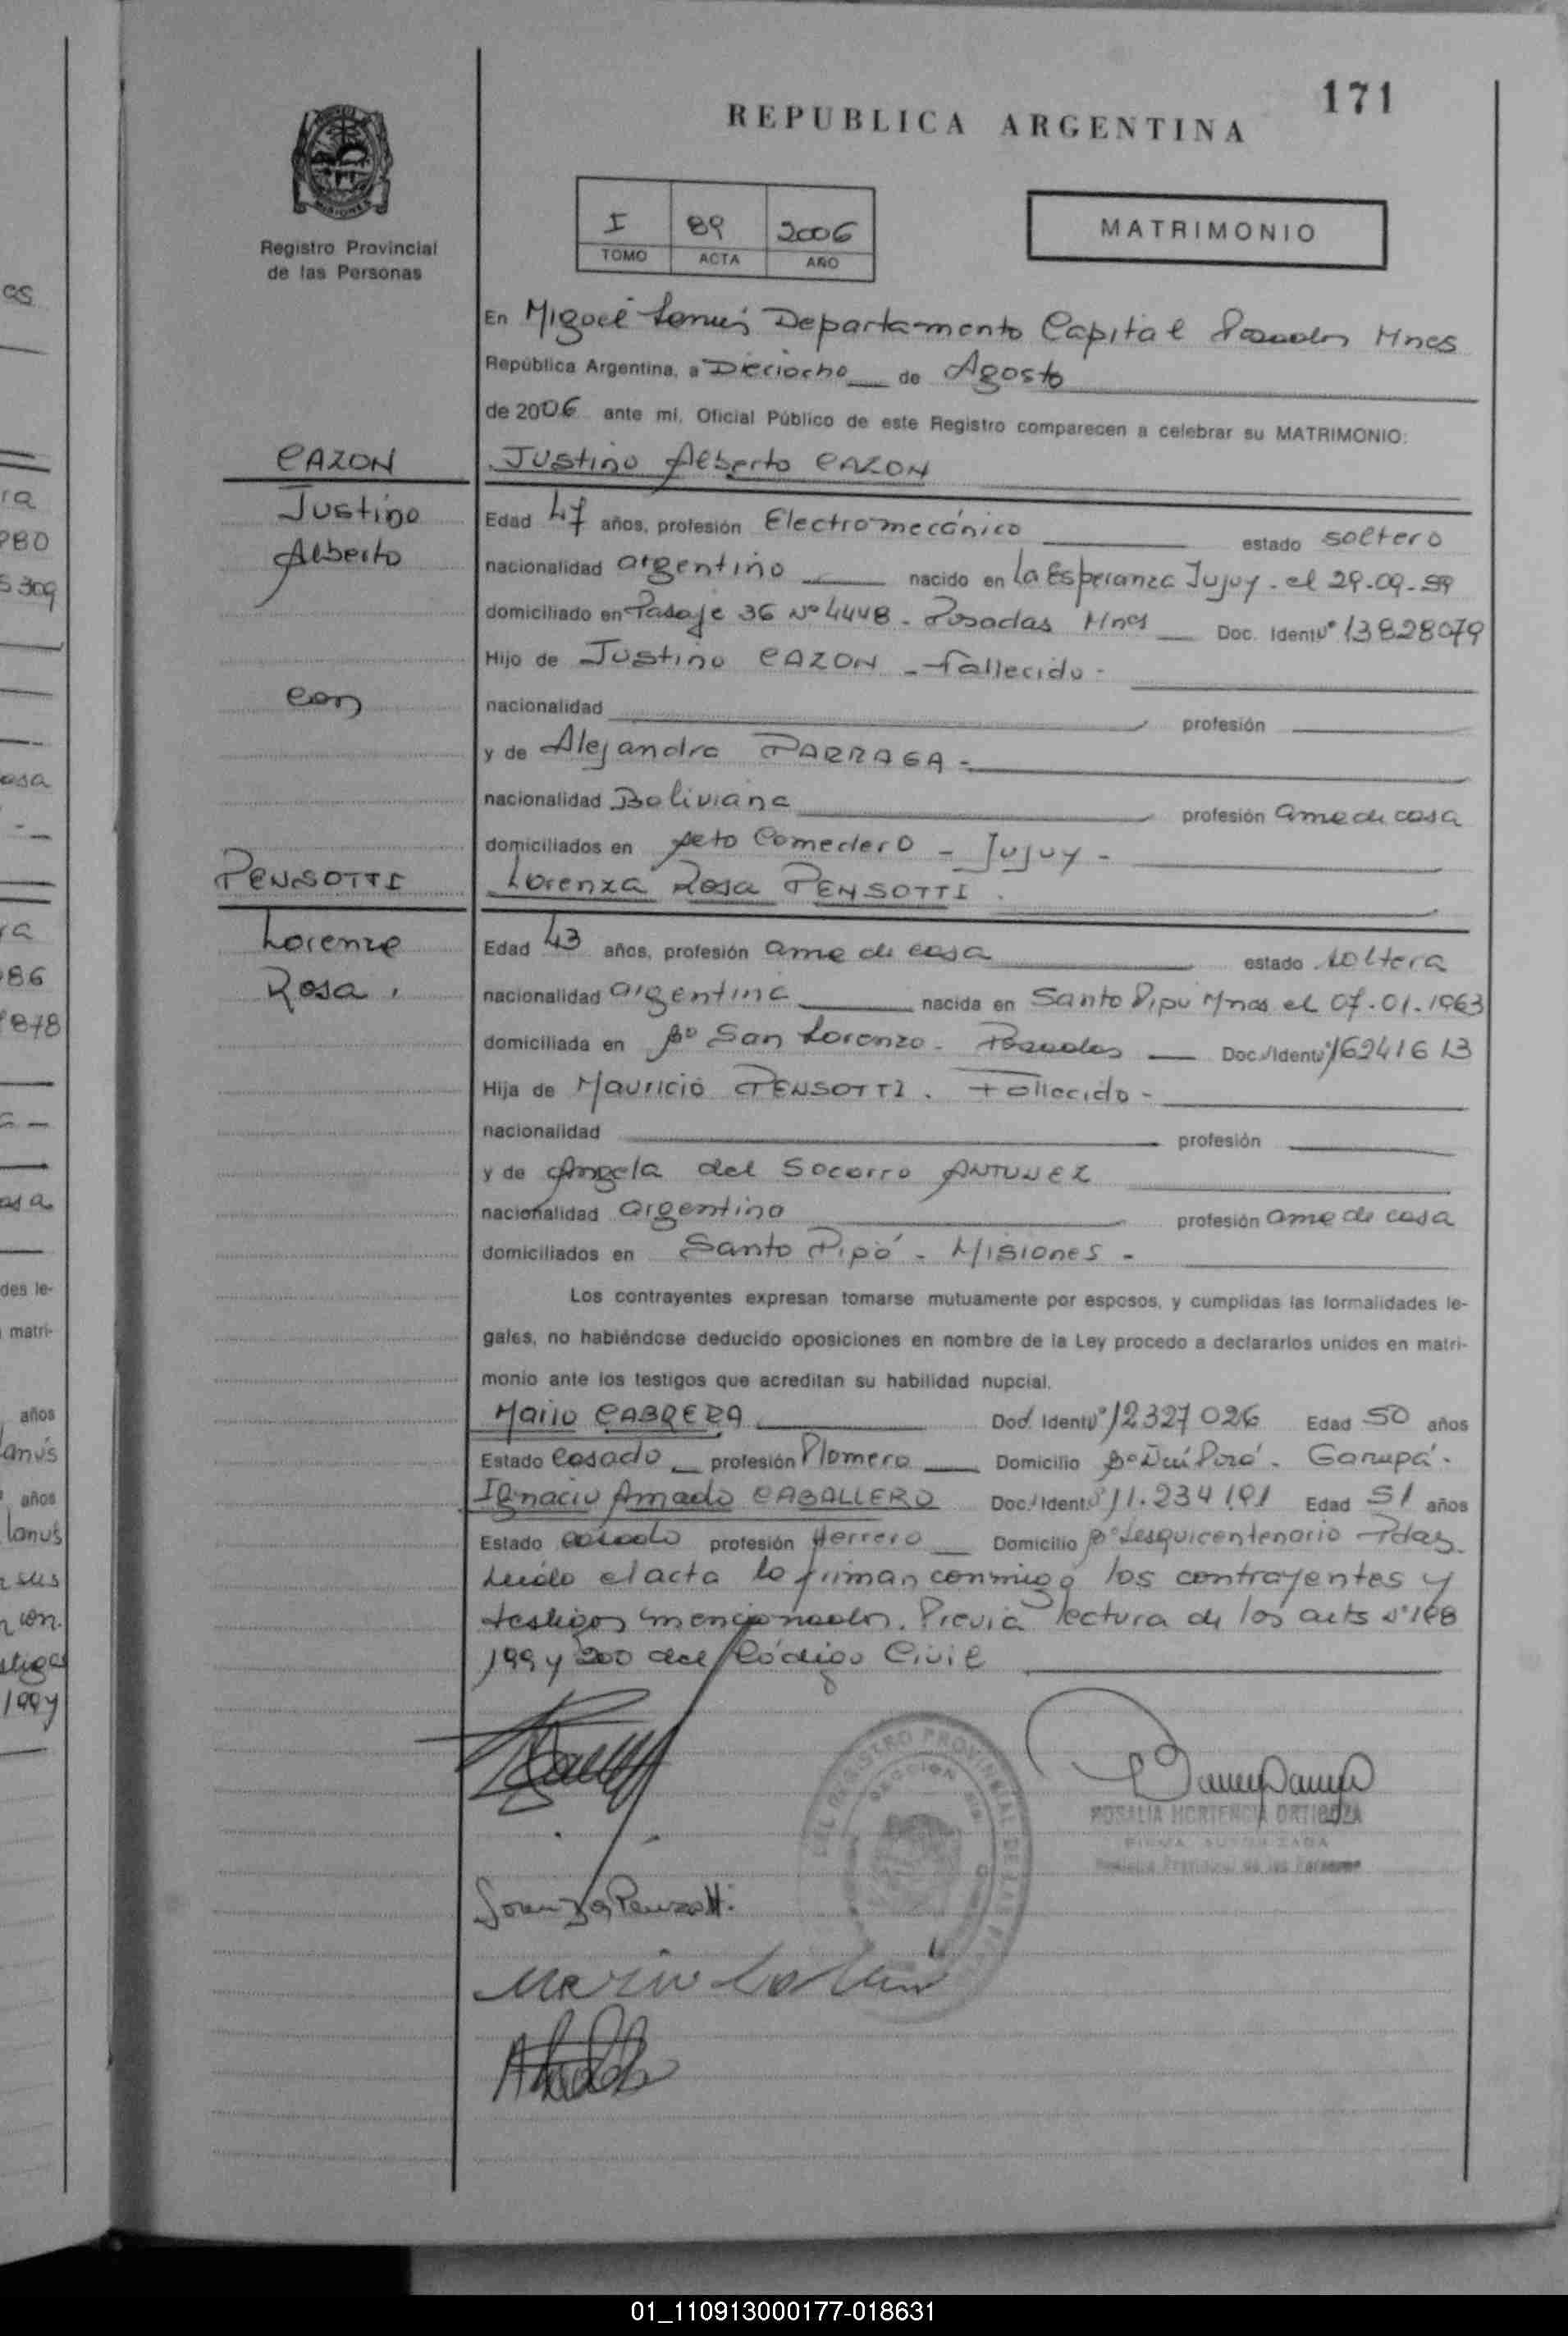 171
REPUBLICA ARGENTINA
MISIONES
Registro Provincial
de las Personas
I 89 2006
TOMO ACTA AÑO
MATRIMONIO
En Miguel Lanús Departamento Capital Posadas Mnes
República Argentina, a Dieciocho de Agosto
de 2006 ante mí, Oficial Público de este Registro comparecen a celebrar su MATRIMONIO:
CAZON
Justino Alberto CAZON
Justino
Alberto
Edad 47 años, profesión Electromecánico estado soltero
nacionalidad argentino nacido en La Esperanza Jujuy - el 29-09-59
domiciliado en Pasaje 36 Nº 4448 - Posadas Mnes Doc. Ident. Nº 13828079
Hijo de Justino CAZON - Fallecido -
con
nacionalidad profesión
y de Alejandra PARRAGA -
nacionalidad Boliviana profesión ama de casa
domiciliados en Alto Comedero - Jujuy -
PENSOTTI
Lorenza Rosa PENSOTTI
Lorenza
Rosa.
Edad 43 años, profesión ama de casa estado soltera
nacionalidad argentina nacida en Santo Pipó Mnes el 07-01-1963
domiciliada en Bº San Lorenzo - Posadas Doc. Ident. Nº 16241613
Hija de Mauricio PENSOTTI. Fallecido -
nacionalidad profesión
y de Angela del Socorro ANTUNEZ
nacionalidad argentina profesión ama de casa
domiciliados en Santo Pipó - Misiones -
Los contrayentes expresan tomarse mutuamente por esposos, y cumplidas las formalidades le-
gales, no habiéndose deducido oposiciones en nombre de la Ley procedo a declararlos unidos en matri-
monio ante los testigos que acreditan su habilidad nupcial.
Mario CABRERA Doc. Ident. Nº 12327026 Edad 50 años
Estado casado profesión Plomero Domicilio Bº Ñuí Porá - Garupá -
Ignacio Amado CABALLERO Doc. Ident. Nº 11.234191 Edad 51 años
Estado casado profesión Herrero Domicilio Bº Sesquicentenario Pdas
Leído el acta lo firman conmigo los contrayentes y
testigos mencionados. Previa lectura de los arts Nº 198
199 y 200 del Código Civil
REGISTRO PROVINCIAL DE LAS
ROSALIA HORTENCIA ORTIGOZA
FIRMA AUTORIZADA
Registro Provincial de las Personas
Lorenza Pensotti
01_110913000177-018631